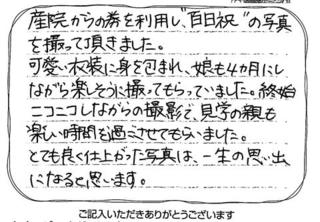 産院からの券を利用し、"百日祝"の写真
を撮って頂きました。
可愛い衣装に身を包まれ、娘も4ヵ月にし
ながら楽しそうに撮ってもらっていました。終始
ニコニコしながらの撮影で、見学の親も
楽しい時間を過ごさせてもらいました。
とても良く仕上がった写真は、一生の思い出
になると思います。
ご記入いただきありがとうございます